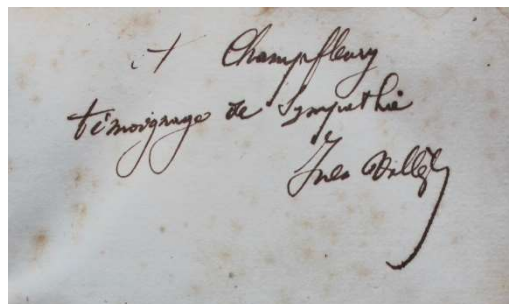 A Champfleury
témoignage de Sympathie
Jules